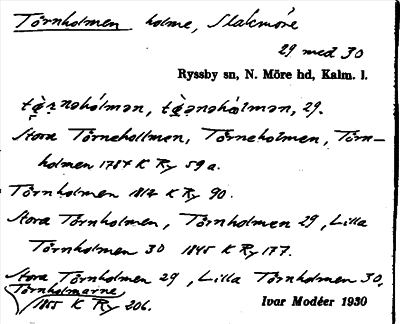 Törnholmen holme, Slakmöre
29 med 30
Ryssby sn, N. Möre hd, Kalm. l.
29.
Stora Törnehollmen, Törneholmen, Törn-
holmen 1784 K Ry 59a.
Törnholmen 1814 K Ry 90.
Stora Törnholmen, Törnholmen 29, Lilla
Törnholmen 30 1845 K Ry 177.
Stora Törnholmen 29, Lilla Törnholmen 30,
Törnholmarne
1855 K Ry 206.
Ivar Modéer 1930